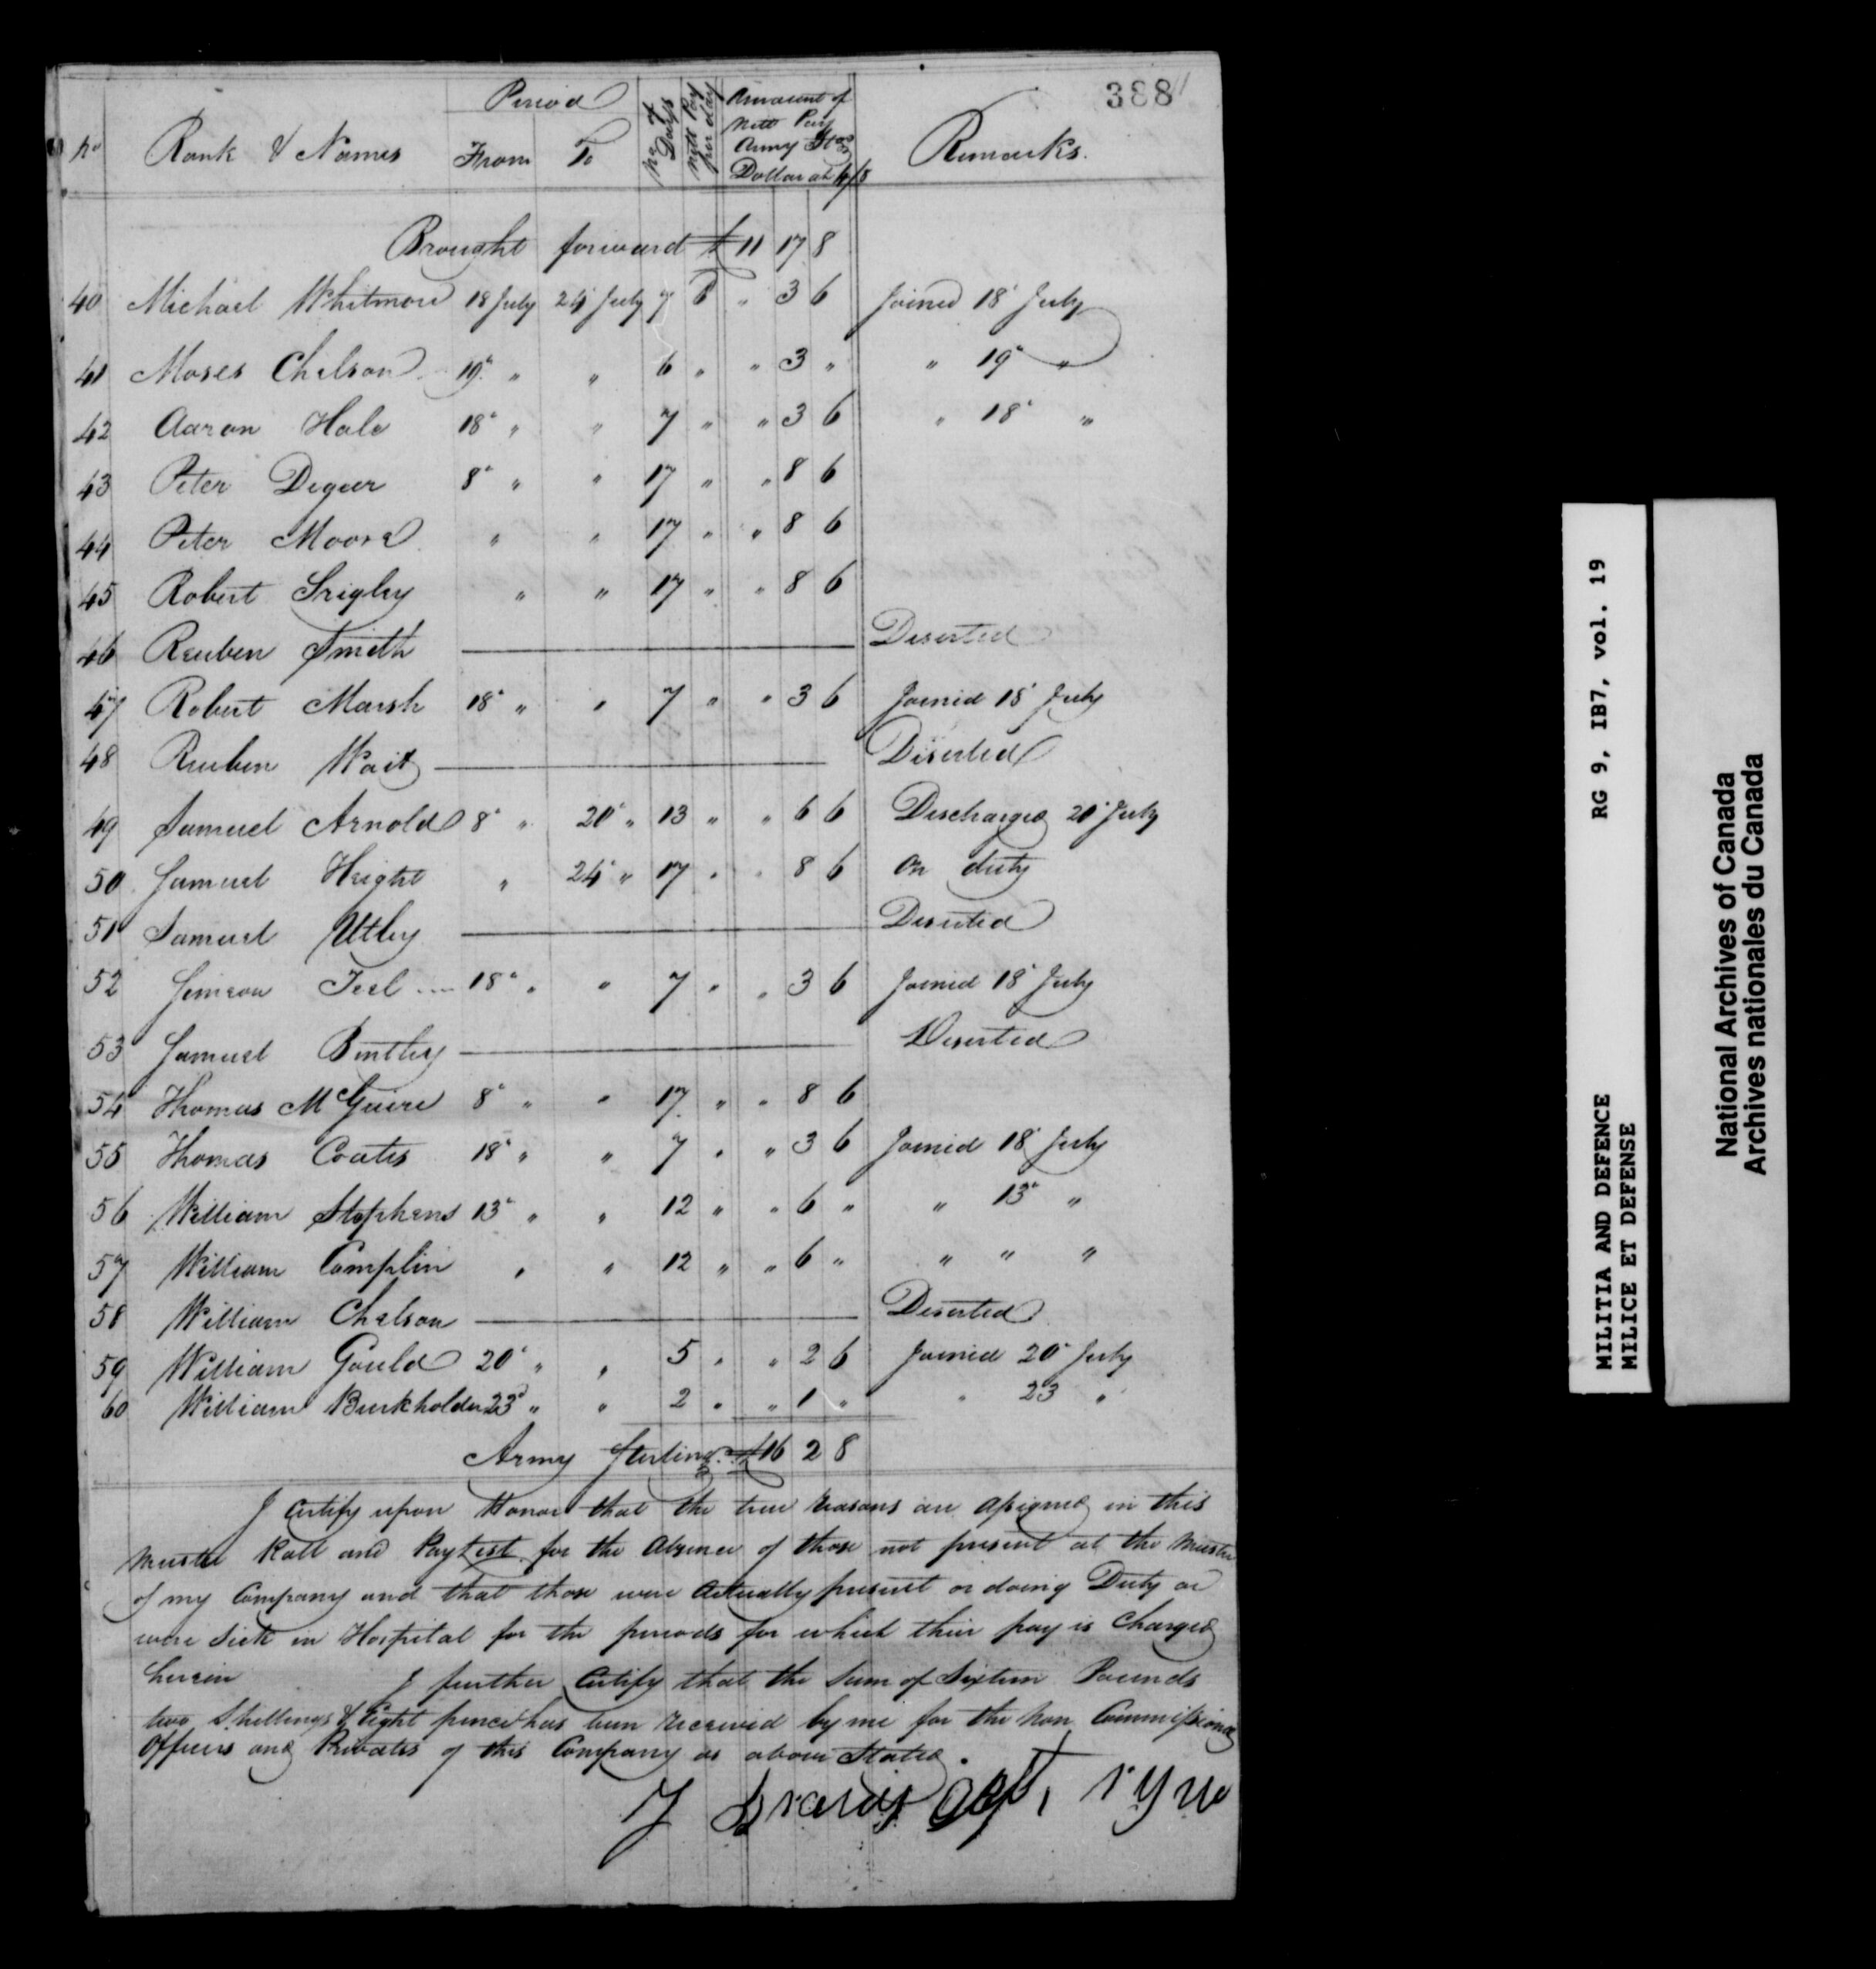 388
Period
No | Rank & Names | From | To | No of Days | Nett Pay per day | Amount of Nett Pay Army Stg Dollar at 4/8 | Remarks.
Brought forward £ 11 17 8
40 Michael Whitmore 18 July 24 July 7 6 " 3 6 Joined 18 July
41 Moses Chelson 19 " " 6 " " 3 " " 19 "
42 Aaron Hale 18 " " 7 " " 3 6 " 18 "
43 Peter Degeer 8 " " 17 " " 8 6
44 Peter Moore " " 17 " " 8 6
45 Robert Srigley " " 17 " " 8 6
46 Reuben Smith Deserted
47 Robert Marsh 18 " " 7 " " 3 6 Joined 18 July
48 Reuben Wait Deserted
49 Samuel Arnold 8 " 20 " 13 " " 6 6 Discharged 20 July
50 Samuel Height " 24 " 17 " " 8 6 On duty
51 Samuel Utley Deserted
52 Simeon Teel 18 " " 7 " " 3 6 Joined 18 July
53 Samuel Bentley Deserted
54 Thomas McGuire 8 " " 17 " " 8 6
55 Thomas Coates 18 " " 7 " " 3 6 Joined 18 July
56 William Stephens 13 " " 12 " " 6 " " 13 "
57 William Complin " " 12 " " 6 " " " "
58 William Chelson Deserted
59 William Gould 20 " " 5 " " 2 6 Joined 20 July
60 William Burkholder 23 " " 2 " " 1 " " 23 "
Army Sterling £ 16 2 8
I Certify upon Honor that the true reasons are assigned in this
Muster Roll and Paylist for the Absence of those not present at the Muster
of my Company and that those were Actually present or doing Duty or
were Sick in Hospital for the periods for which their pay is Charged
herein I further Certify that the Sum of Sixteen Pounds
two Shillings & Eight pence has been received by me for the Non Commissioned
Officers and Privates of this Company as above Stated.
Capt.
MILITIA AND DEFENCE RG 9, IB7, vol. 19
MILICE ET DEFENSE
National Archives of Canada
Archives nationales du Canada